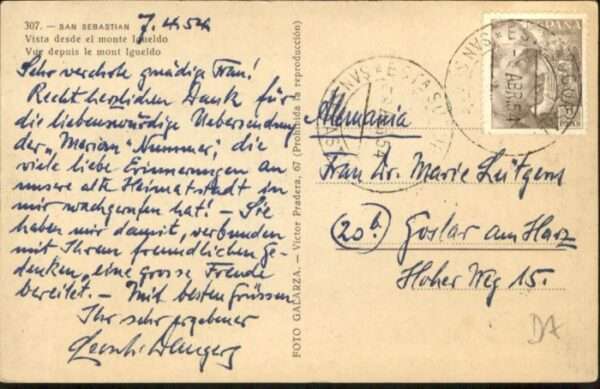 307. — SAN SEBASTIAN
Vista desde el monte Igueldo
Vue depuis le mont Igueldo
7.4.54
Sehr verehrte gnädige Frau!
Recht herzlichen Dank für
die liebenswürdige Uebersendung
der „Merian" Nummer, die
viele liebe Erinnerungen an
unsere alte Heimatstadt in
mir wachgerufen hat! - Sie
haben mir damit, verbunden
mit Ihrem freundlichen Ge-
denken, eine grosse Freude
bereitet. - Mit besten Grüssen
Ihr sehr ergebener
FOTO GALARZA. — Victor Pradera, 67 (Prohibida la reproducción)
ESPAÑA
ABR.54
Alemania
Frau Dr. Marie Lütgens
(20b) Goslar am Harz
Hoher Weg 15.